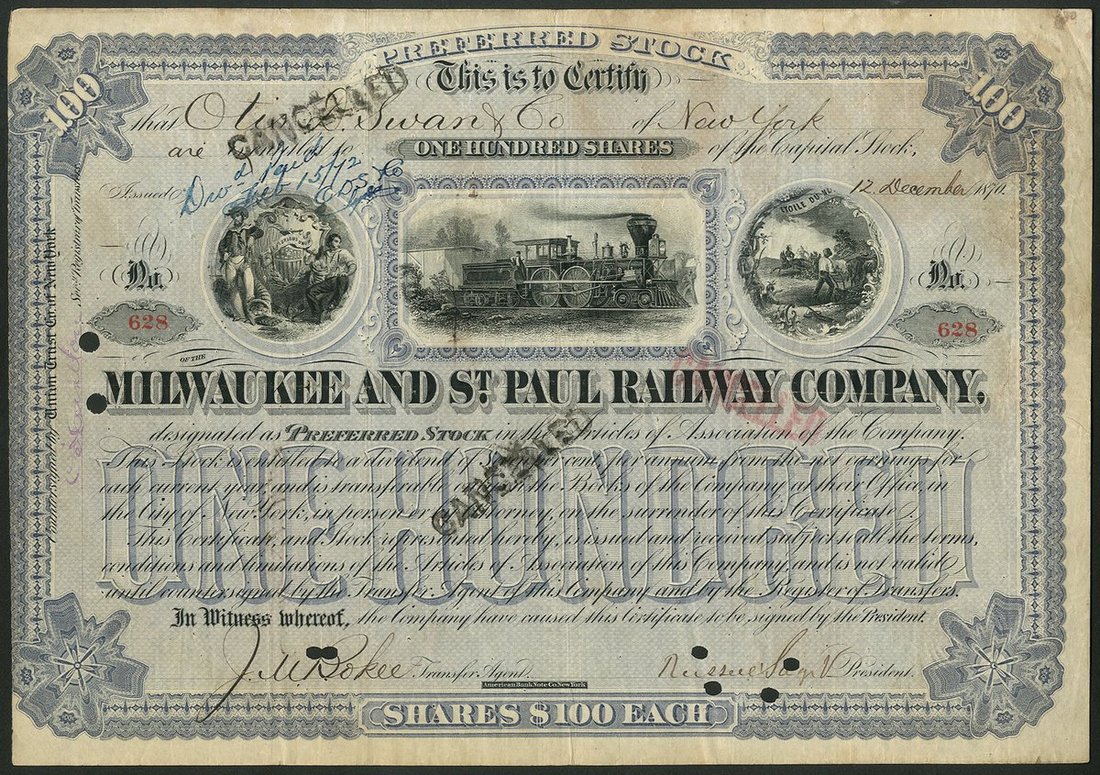 PREFERRED STOCK
This is to Certify
100
100
that Otis D. Swan & Co of New York
CANCELLED
are entitled to ONE HUNDRED SHARES of the Capital Stock,
Div'd paid
Feb 15/72
Issued
12 December 1870.
ETOILE DU NORD
No.
No.
628
628
OF THE
MILWAUKEE AND ST. PAUL RAILWAY COMPANY,
CANCELLED
designated as PREFERRED STOCK in the Articles of Association of the Company.
This Stock is entitled to a dividend of seven per cent per annum from the net earnings for
each current year, and is transferable only on the Books of the Company at their Office in
the City of New York, in person or by attorney, on the surrender of this Certificate.
CANCELLED
This Certificate, and Stock represented hereby, is issued and received subject to all the terms,
conditions and limitations of the Articles of Association of this Company, and is not valid
until countersigned by the Transfer Agent of this Company and by the Register of Transfers.
ONE HUNDRED
In Witness whereof, the Company have caused this Certificate to be signed by the President.
J. M. Bokee Transfer Agent.
Russell Sage V President.
American Bank Note Co. New York
SHARES $100 EACH
Union Trust Co. of New York